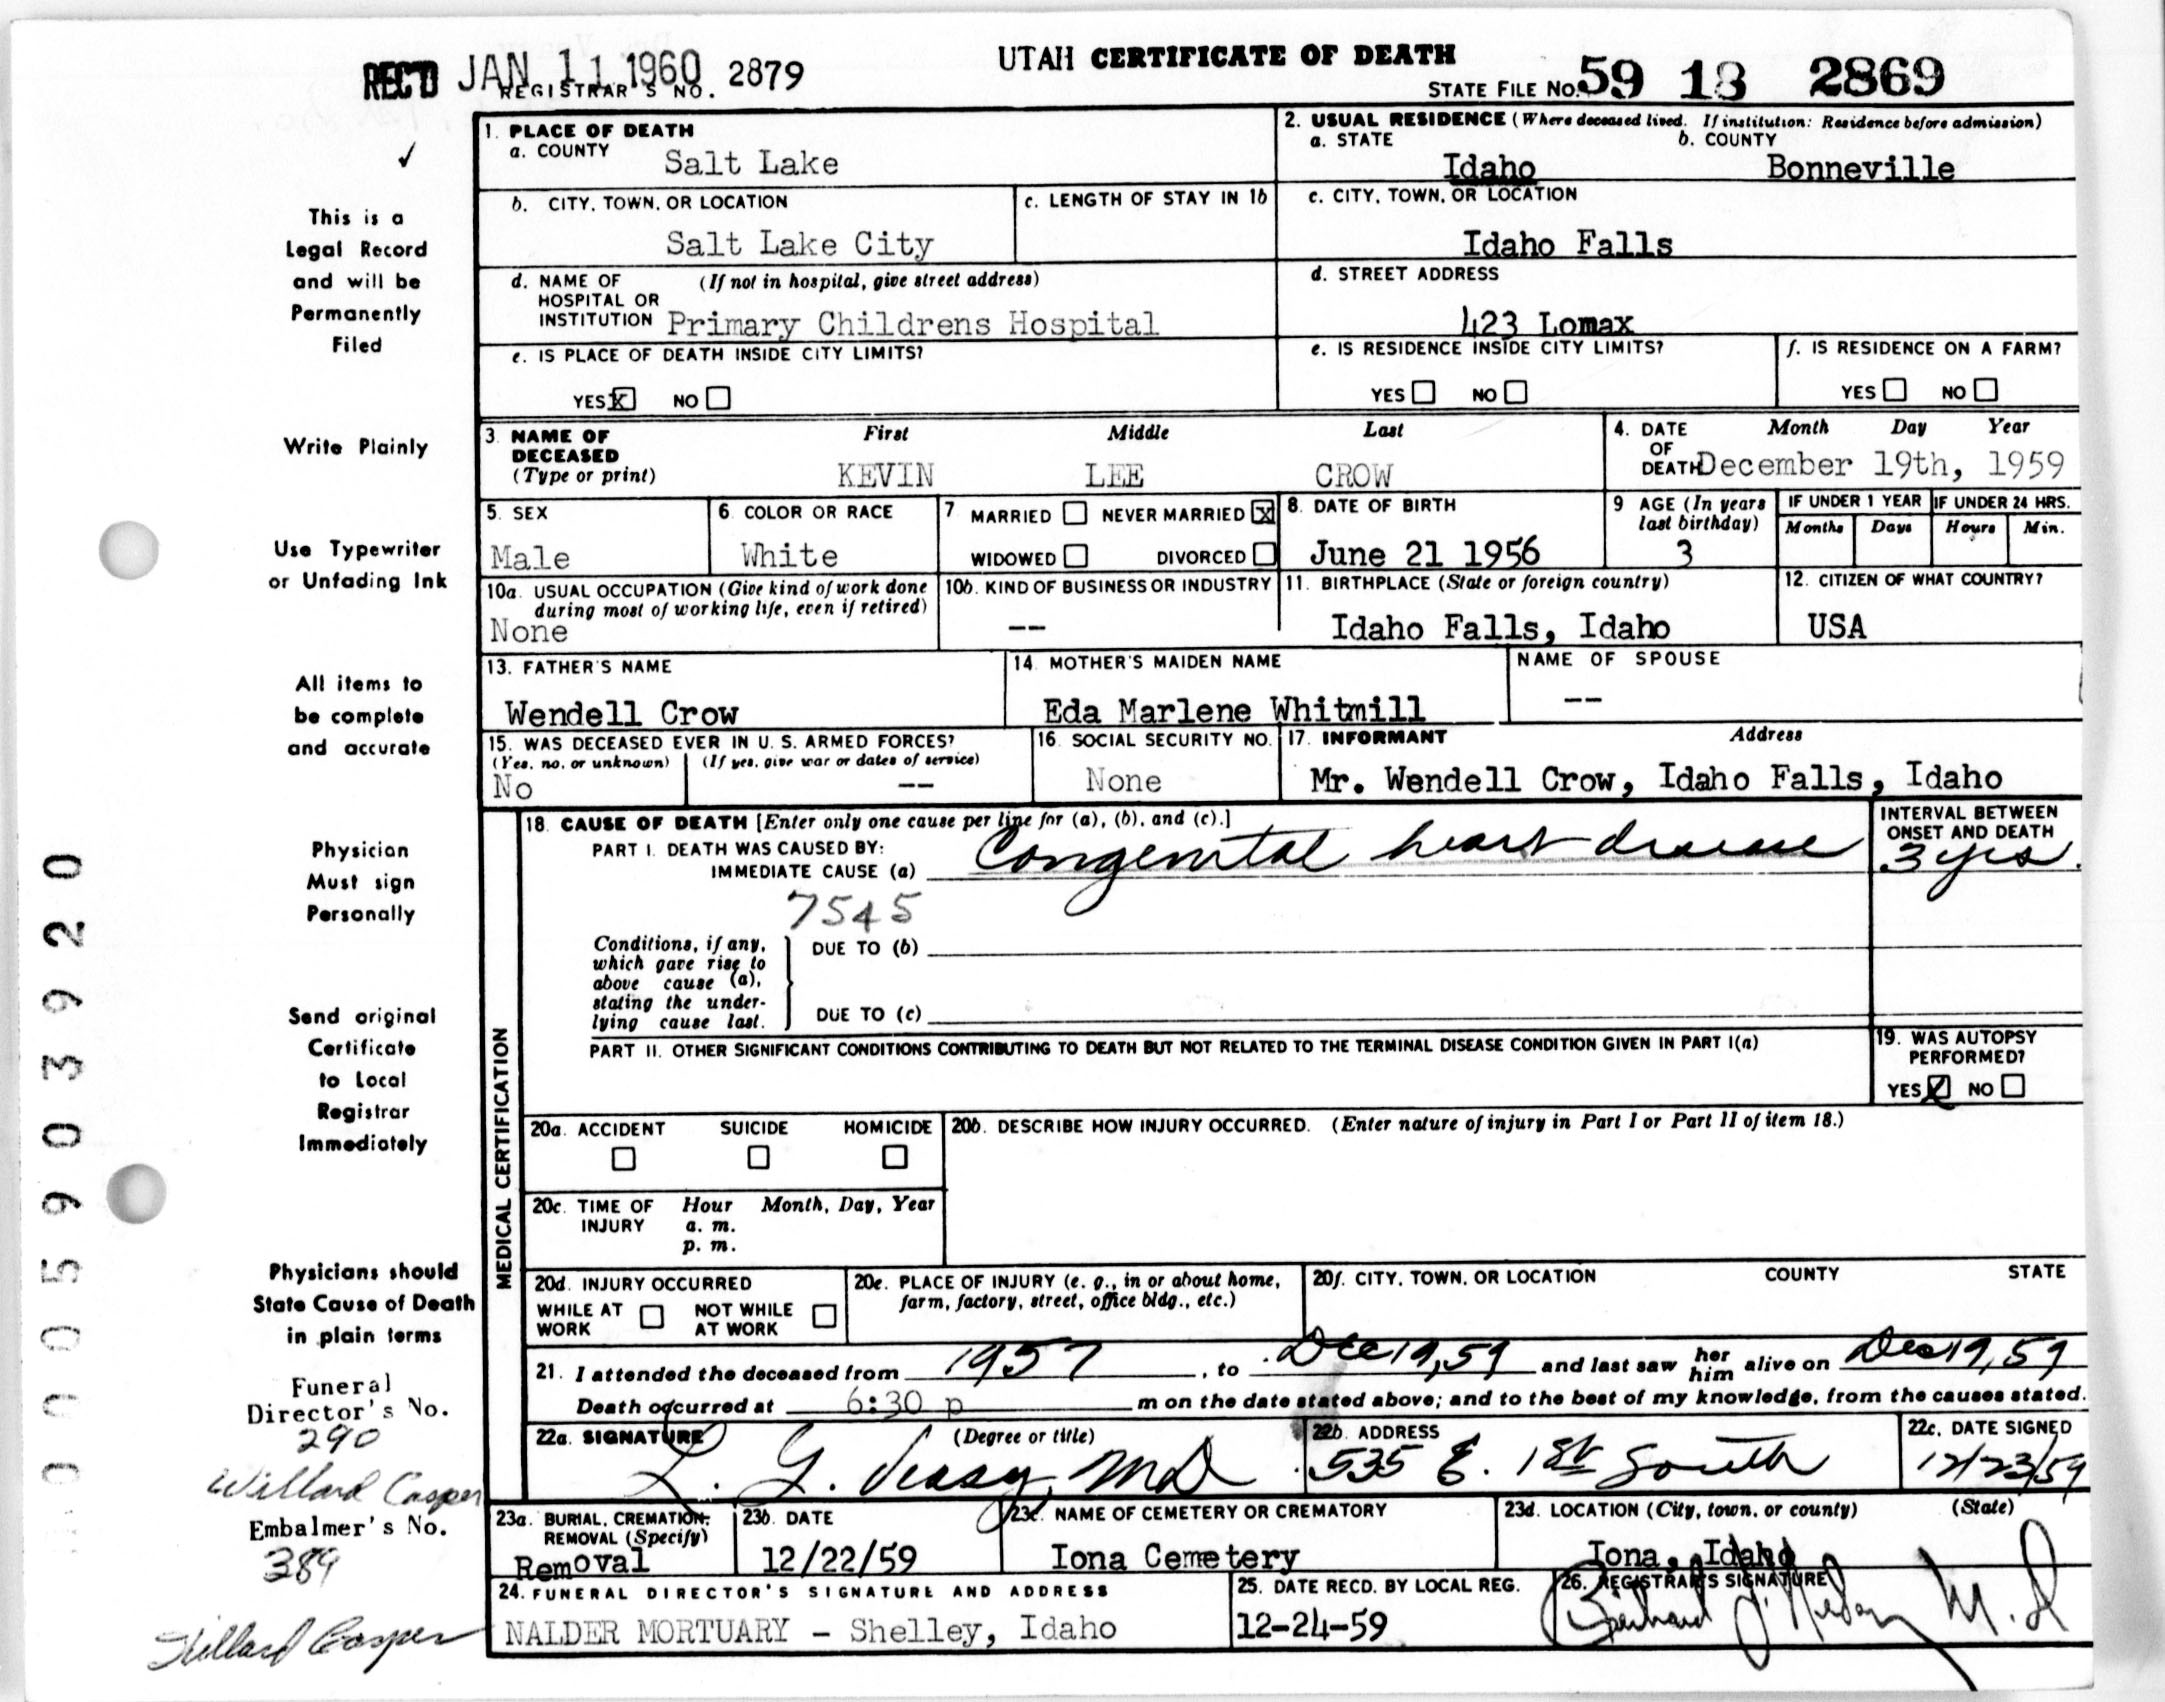 UTAH CERTIFICATE OF DEATH
REC'D JAN 11 1960
REGISTRAR'S NO. 2879
STATE FILE NO. 59 18 2869
1. PLACE OF DEATH
a. COUNTY Salt Lake
b. CITY, TOWN, OR LOCATION Salt Lake City
c. LENGTH OF STAY IN 1b
d. NAME OF HOSPITAL OR INSTITUTION (If not in hospital, give street address) Primary Childrens Hospital
e. IS PLACE OF DEATH INSIDE CITY LIMITS?
YES X NO
2. USUAL RESIDENCE (Where deceased lived. If institution: Residence before admission)
a. STATE Idaho b. COUNTY Bonneville
c. CITY, TOWN, OR LOCATION Idaho Falls
d. STREET ADDRESS 423 Lomax
e. IS RESIDENCE INSIDE CITY LIMITS?
YES NO
f. IS RESIDENCE ON A FARM?
YES NO
3. NAME OF DECEASED (Type or print)
First Middle Last
KEVIN LEE CROW
4. DATE OF DEATH Month Day Year
December 19th, 1959
5. SEX Male
6. COLOR OR RACE White
7 MARRIED NEVER MARRIED X
WIDOWED DIVORCED
8. DATE OF BIRTH June 21 1956
9 AGE (In years last birthday) 3
IF UNDER 1 YEAR Months Days
IF UNDER 24 HRS. Hours Min.
10a. USUAL OCCUPATION (Give kind of work done during most of working life, even if retired) None
10b. KIND OF BUSINESS OR INDUSTRY --
11. BIRTHPLACE (State or foreign country) Idaho Falls, Idaho
12. CITIZEN OF WHAT COUNTRY? USA
13. FATHER'S NAME Wendell Crow
14. MOTHER'S MAIDEN NAME Eda Marlene Whitmill
NAME OF SPOUSE --
15. WAS DECEASED EVER IN U. S. ARMED FORCES?
(Yes, no, or unknown) No
(If yes, give war or dates of service) --
16. SOCIAL SECURITY NO. None
17. INFORMANT Address
Mr. Wendell Crow, Idaho Falls, Idaho
MEDICAL CERTIFICATION
18. CAUSE OF DEATH [Enter only one cause per line for (a), (b), and (c).]
PART I. DEATH WAS CAUSED BY:
IMMEDIATE CAUSE (a) Congenital heart disease
INTERVAL BETWEEN ONSET AND DEATH 3 yrs.
7545
Conditions, if any, which gave rise to above cause (a), stating the underlying cause last.
DUE TO (b)
DUE TO (c)
PART II. OTHER SIGNIFICANT CONDITIONS CONTRIBUTING TO DEATH BUT NOT RELATED TO THE TERMINAL DISEASE CONDITION GIVEN IN PART I(a)
19. WAS AUTOPSY PERFORMED?
YES X NO
20a. ACCIDENT SUICIDE HOMICIDE
20b. DESCRIBE HOW INJURY OCCURRED. (Enter nature of injury in Part I or Part II of item 18.)
20c. TIME OF INJURY Hour a. m. p. m. Month, Day, Year
20d. INJURY OCCURRED
WHILE AT WORK NOT WHILE AT WORK
20e. PLACE OF INJURY (e. g., in or about home, farm, factory, street, office bldg., etc.)
20f. CITY, TOWN, OR LOCATION COUNTY STATE
21. I attended the deceased from 1957, to Dec 19, 59 and last saw her him alive on Dec 19, 59
Death occurred at 6:30 p m on the date stated above; and to the best of my knowledge, from the causes stated.
22a. SIGNATURE (Degree or title) L. G. MD
22b. ADDRESS 535 E. 1st South
22c. DATE SIGNED 12/23/59
23a. BURIAL, CREMATION, REMOVAL (Specify) Removal
23b. DATE 12/22/59
23c. NAME OF CEMETERY OR CREMATORY Iona Cemetery
23d. LOCATION (City, town, or county) (State) Iona, Idaho
24. FUNERAL DIRECTOR'S SIGNATURE AND ADDRESS
NALDER MORTUARY - Shelley, Idaho
25. DATE RECD. BY LOCAL REG. 12-24-59
26. REGISTRAR'S SIGNATURE M.D
This is a
Legal Record
and will be
Permanently
Filed
Write Plainly
Use Typewriter
or Unfading Ink
All items to
be complete
and accurate
Physician
Must sign
Personally
Send original
Certificate
to Local
Registrar
Immediately
Physicians should
State Cause of Death
in plain terms
Funeral
Director's No.
290
Willard Casper
Embalmer's No.
389
Willard Casper
0005903920